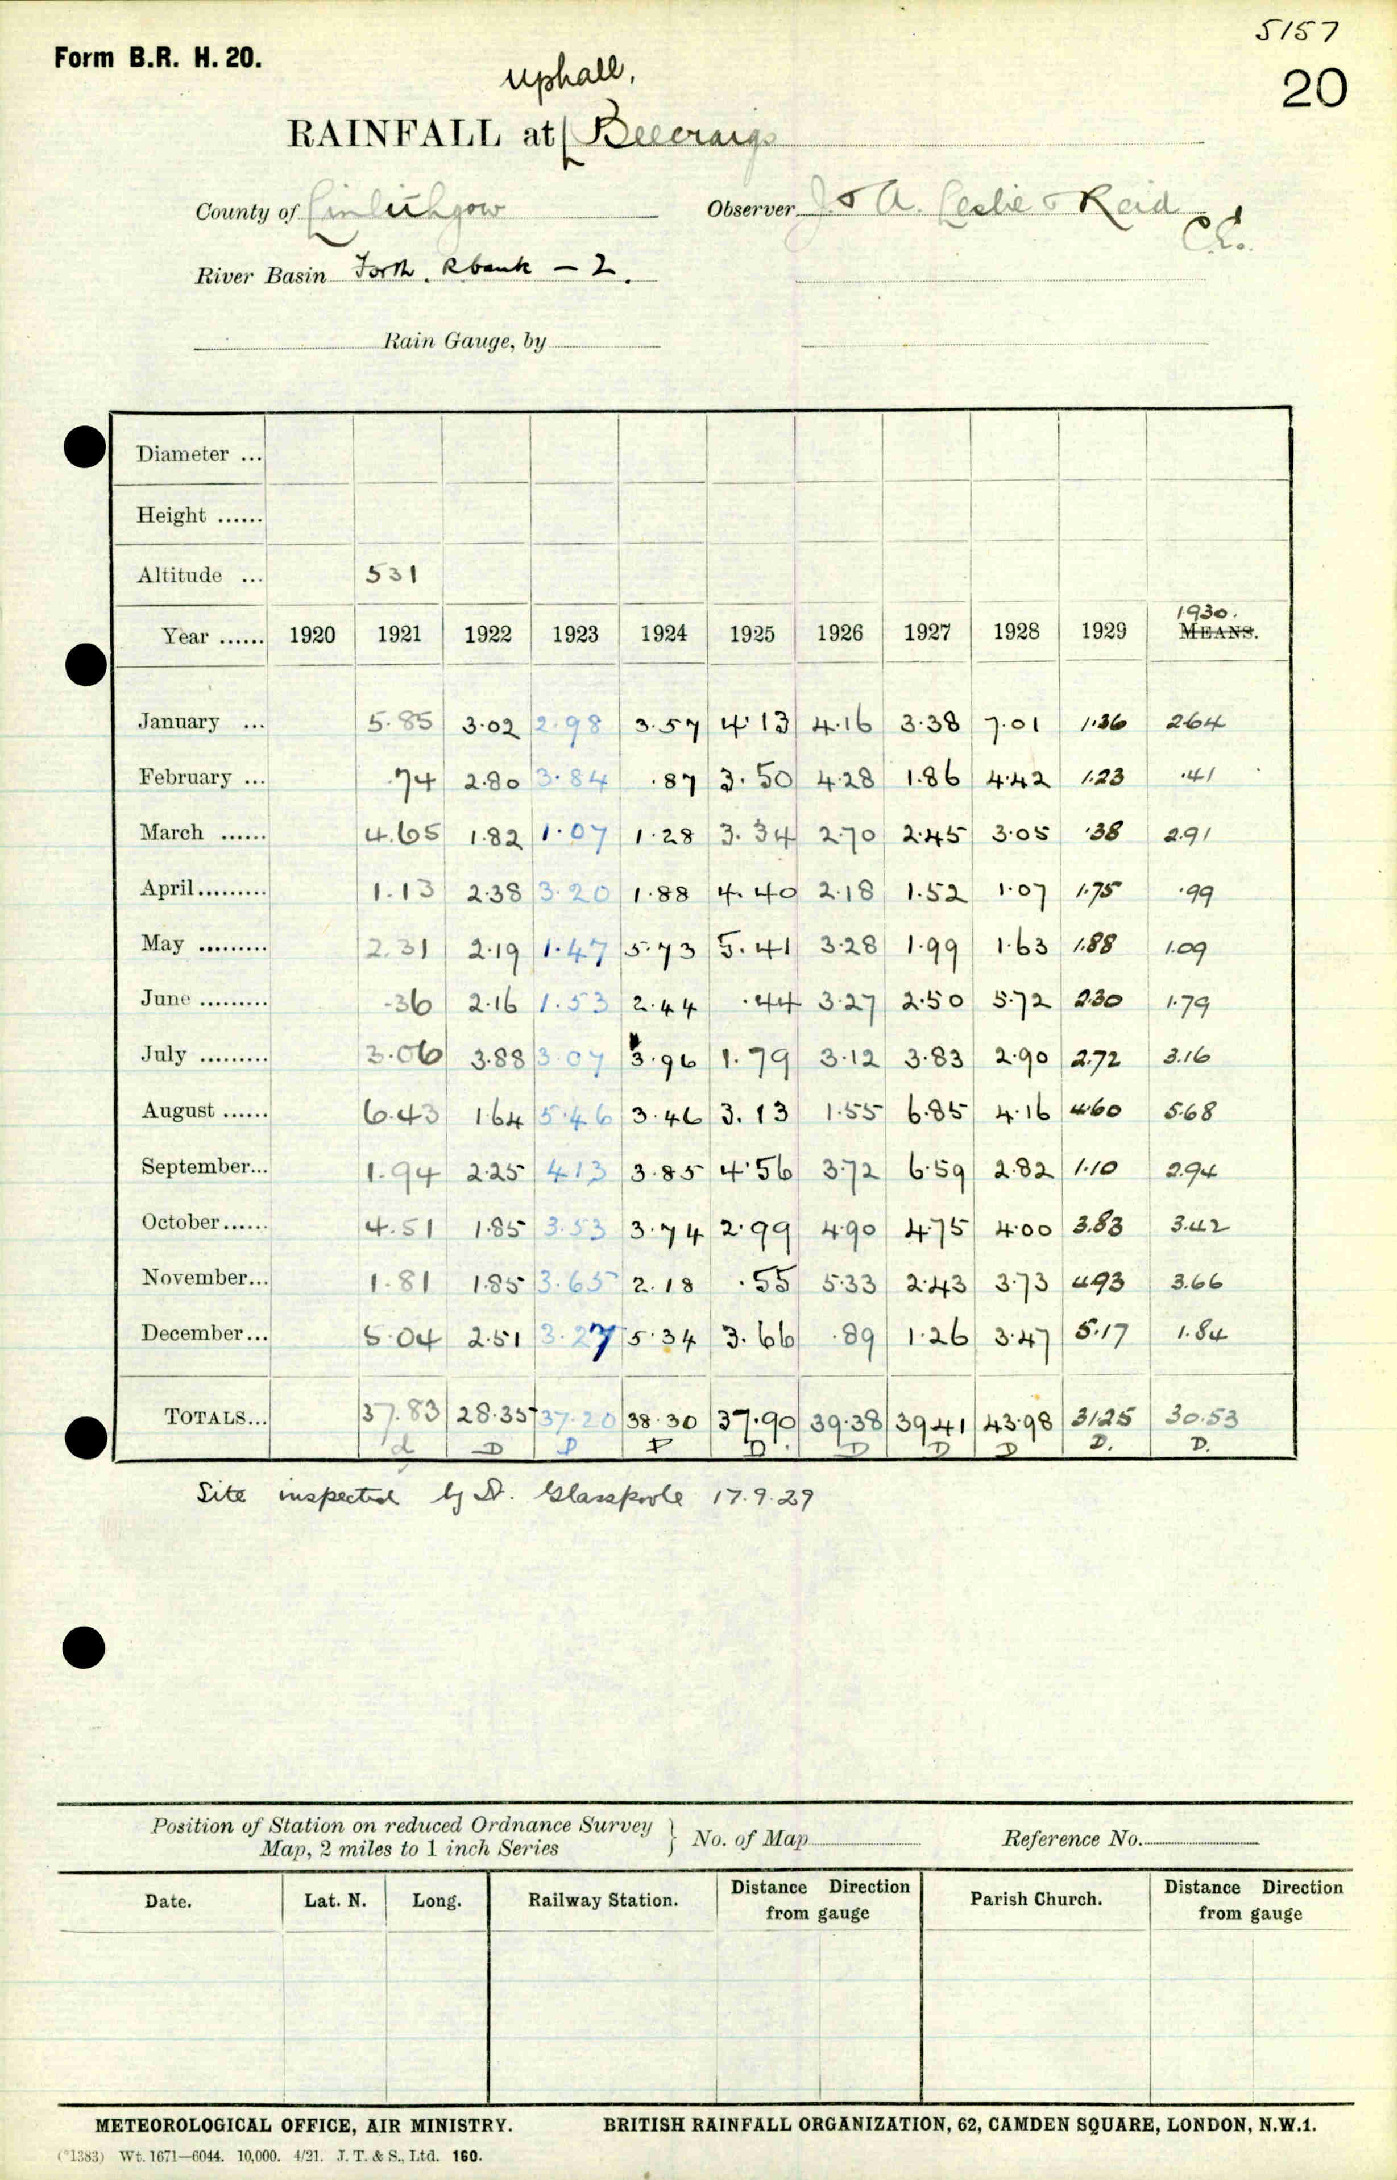 5157
Form B.R. H. 20.
20
Uphall,
RAINFALL at Beecraigs
County of Linlithgow Observer J. & A. Leslie & Reid
C.E.
River Basin Forth. R bank - 2.
Rain Gauge, by
Diameter ...
Height ......
Altitude ... 531
1930.
Year ...... 1920 1921 1922 1923 1924 1925 1926 1927 1928 1929 MEANS.
January ... 5.85 3.02 2.98 3.57 4.13 4.16 3.38 7.01 1.36 2.64
February ... .74 2.80 3.84 .87 3.50 4.28 1.86 4.42 1.23 .41
March ...... 4.65 1.82 1.07 1.28 3.34 2.70 2.45 3.05 .38 2.91
April......... 1.13 2.38 3.20 1.88 4.40 2.18 1.52 1.07 1.75 .99
May ......... 2.31 2.19 1.47 5.73 5.41 3.28 1.99 1.63 1.88 1.09
June ......... .36 2.16 1.53 2.44 .44 3.27 2.50 5.72 2.30 1.79
July ......... 3.06 3.88 3.07 3.96 1.79 3.12 3.83 2.90 2.72 3.16
August ...... 6.43 1.64 5.46 3.46 3.13 1.55 6.85 4.16 4.60 5.68
September... 1.94 2.25 4.13 3.85 4.56 3.72 6.59 2.82 1.10 2.94
October...... 4.51 1.85 3.53 3.74 2.99 4.90 4.75 4.00 3.83 3.42
November... 1.81 1.85 3.65 2.18 .55 5.33 2.43 3.73 4.93 3.66
December... 5.04 2.51 3.27 5.34 3.66 .89 1.26 3.47 5.17 1.84
TOTALS... 37.83 28.35 37.20 38.30 37.90 39.38 39.41 43.98 31.25 30.53
d D D D D. D D D D. D.
Site inspected by Dr. Glasspoole 17.9.29
Position of Station on reduced Ordnance Survey
Map, 2 miles to 1 inch Series } No. of Map Reference No.
Date. Lat. N. Long. Railway Station. Distance Direction from gauge Parish Church. Distance Direction from gauge
METEOROLOGICAL OFFICE, AIR MINISTRY. BRITISH RAINFALL ORGANIZATION, 62, CAMDEN SQUARE, LONDON, N.W.1.
(*1383) Wt. 1671—6044. 10,000. 4/21. J. T. & S., Ltd. 160.